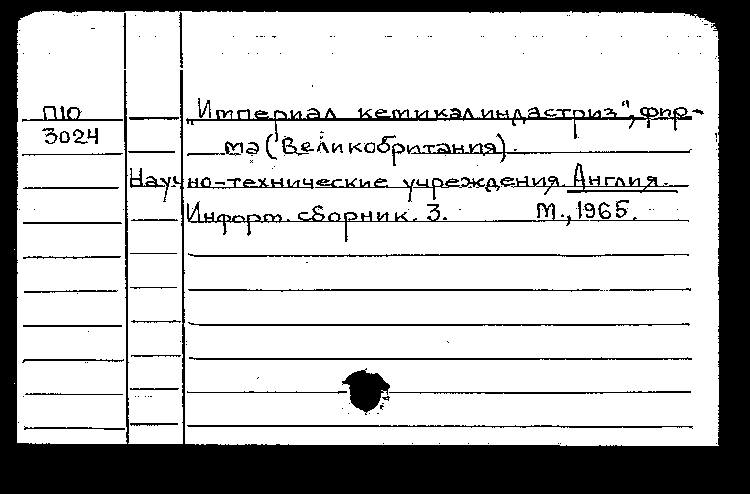 П10
3024
"Империал кемикал индастриз", фир-
ма (Великобритания).
Научно-технические учреждения. Англия.
Информ. сборник. 3. М., 1965.